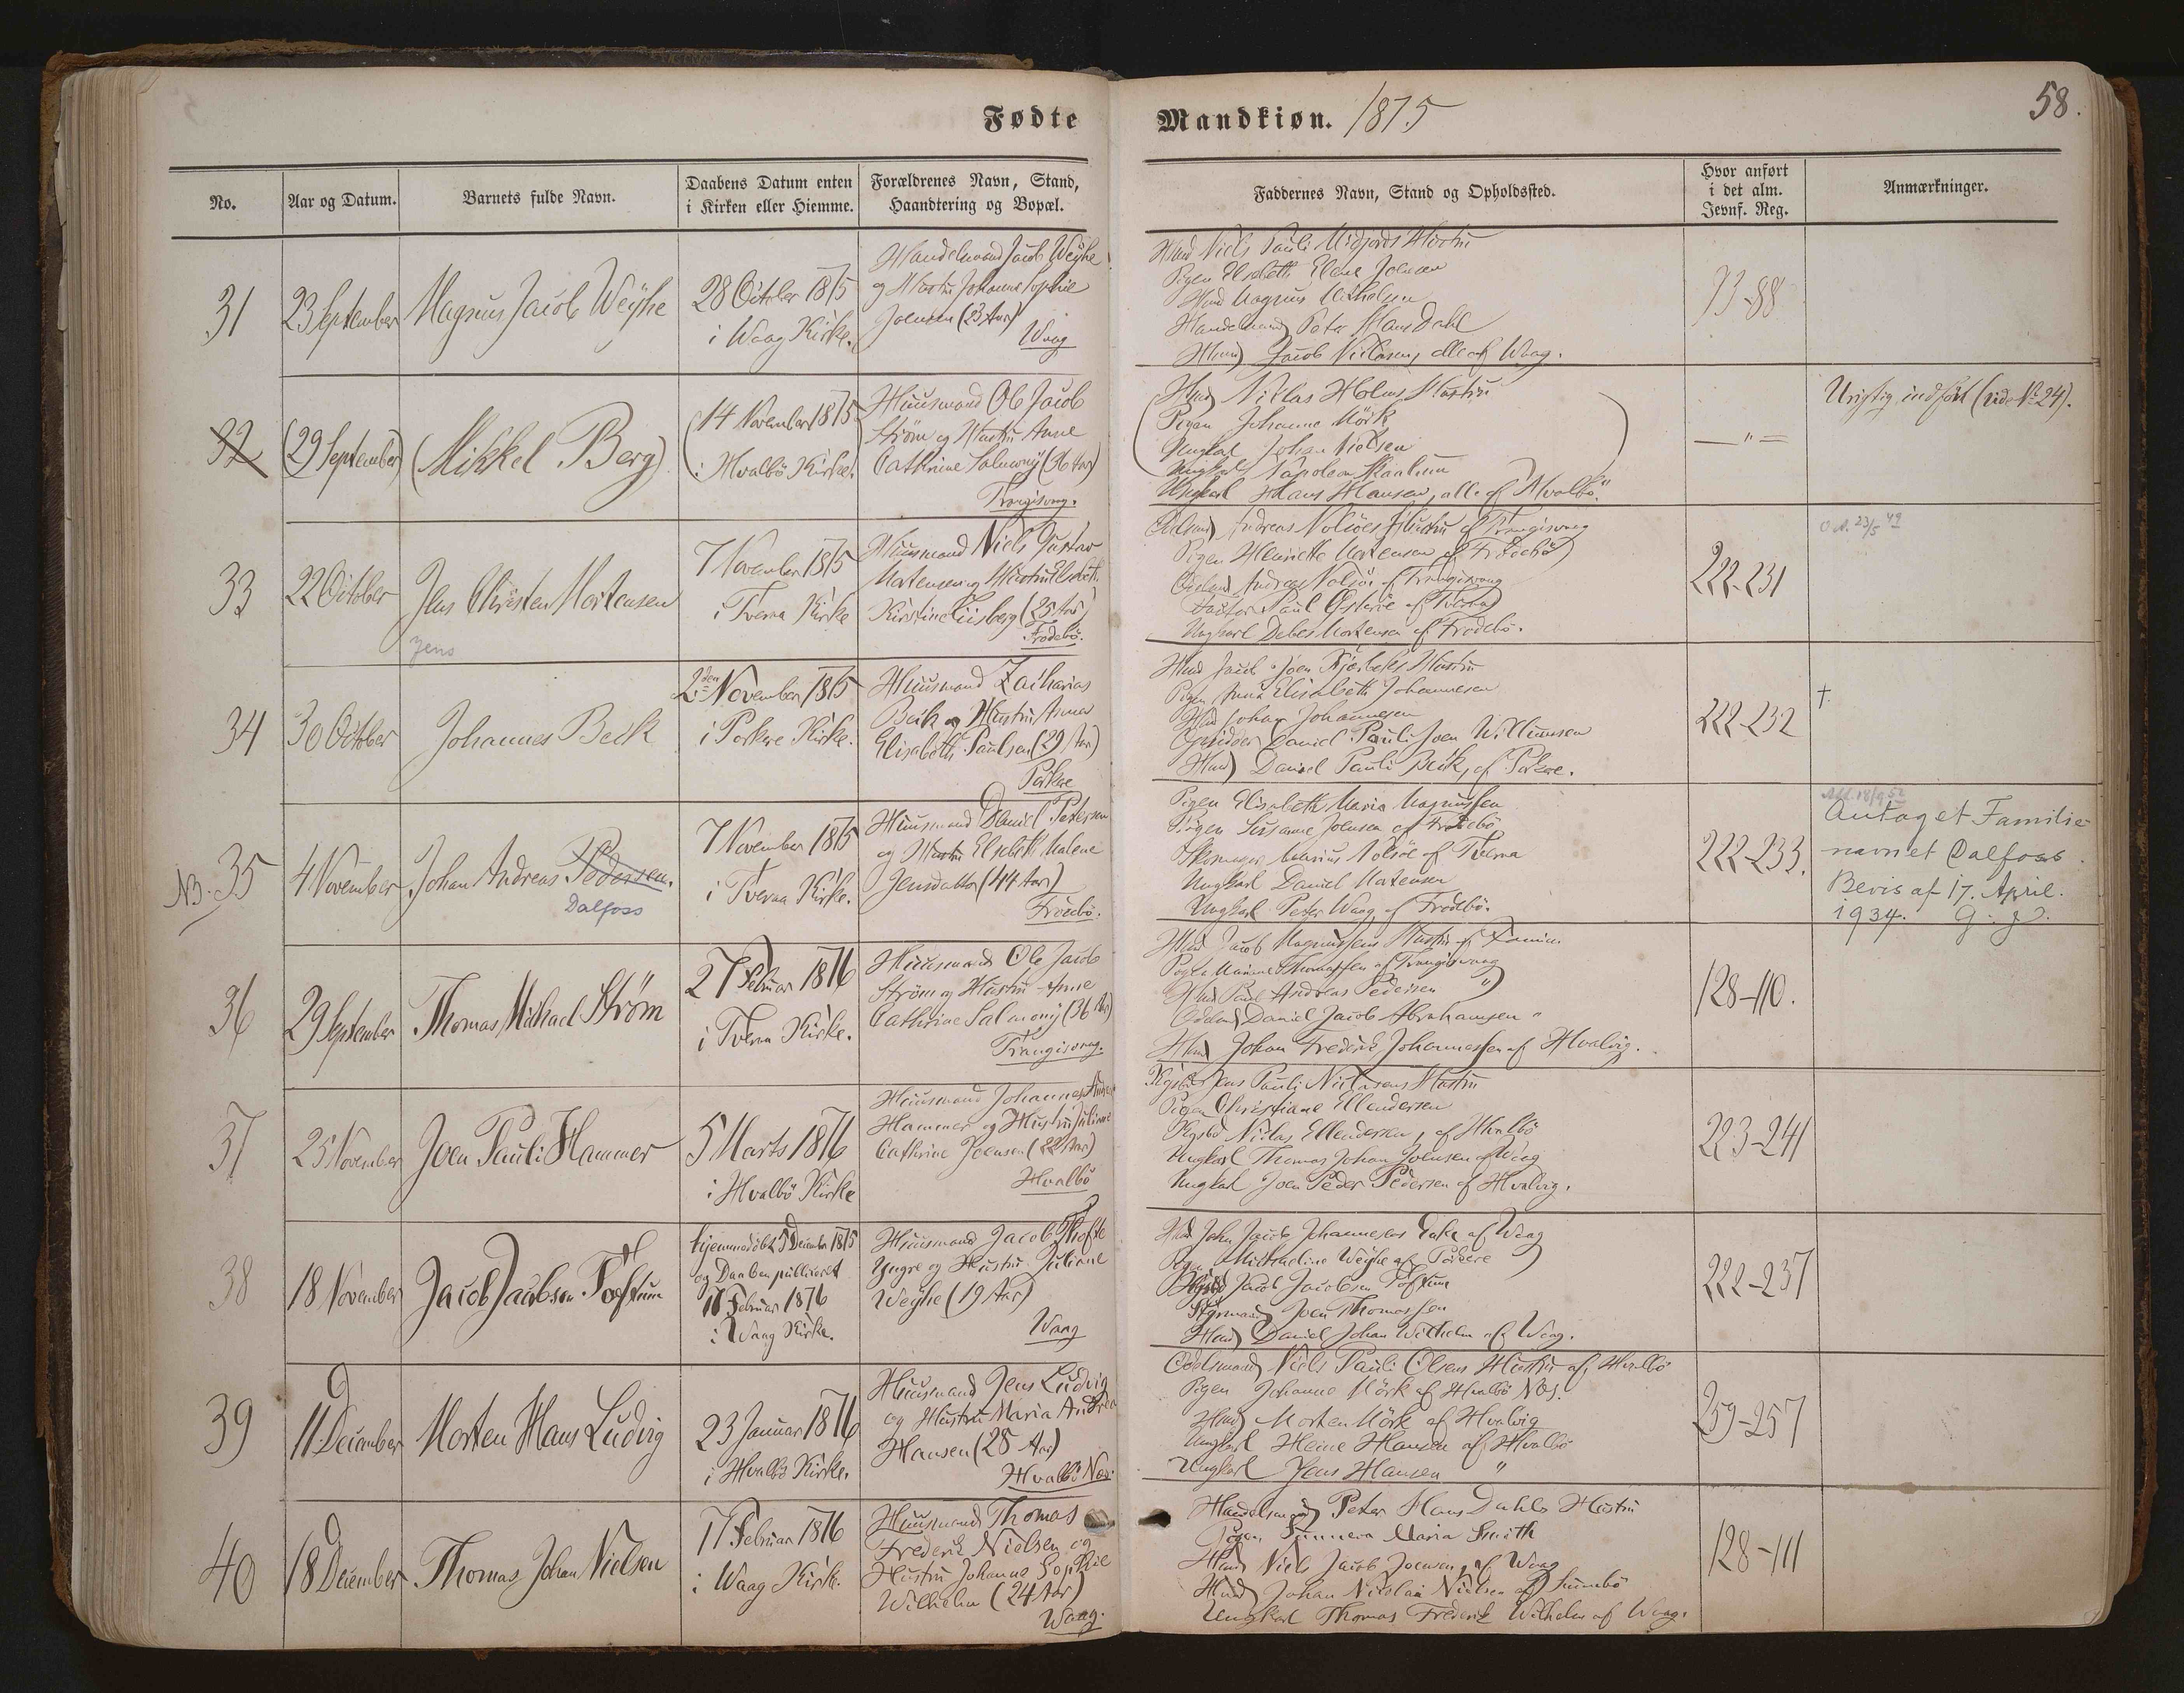 Fødte
Mandkiøn. 1875
58.
No.
Aar og Datum.
Barnets fulde Navn.
Daabens Datum enten
i Kirken eller Hiemme.
Forældrenes Navn, Stand,
Haandtering og Bopæl.
Faddernes Navn, Stand og Opholdssted.
Hvor anført
i det alm.
Jevnf. Reg.
Anmærkninger.
31
23 September
Magnus Jacob Weyhe
28 October 1875
i Waag Kirke.
Handelsmand Jacob Weyhe
og Hustru Johanne Sophie
Joensen (23 Aar)
Waag
Hmd Niels Pauli Midjords Hustru
Pigen Elsebeth Elene Joensen
Hmd Magnus
Handelsmand Peter Hans Dahl
Hmd Jacob Niclasen, alle af Waag.
93-88
32
(29 September)
(Mikkel Berg)
(14 November 1875
i Hvalbö Kirke.)
Huusmand Ole Jacob
Strøm og Hustru Anne
Cathrine Salmony (36 Aar)
Trangisvaag.
Hmd Niklas Holms Hustru
Pigen Johanne Mörk
Ungkarl Johan Nielsen
Ungkarl Napoleon
Ungkarl Hans Hansen, alle af Hvalbö.
— " —
Urigtig indført (vide No 24).
33
22 October
Jens Christen Mortensen
Jens
7 November 1875
i Tveraa Kirke
Huusmand Niels Gustav
Mortensen og Hustru Elsebeth
Kirstine Liisberg (25 Aar)
Frodebö.
Odelsmd Andreas Nolsöes Hustru af Trangisvaag
Pigen Henriette Mortensen af Frodebö
Odelsmd Andreas Nolsöe af Trangisvaag
Poul Østerö af Tveraa
Ungkarl Debes Mortensen af Frodebö.
222-231
23/5 49
34
30 October
Johannes Beck
2den November 1875
i Porkere Kirke.
Huusmand Zacharias
Beck og Hustru Anna
Elisabeth Paulsen (29 Aar)
Porkere
Hmd Jacob Joen Kjærbeks Hustru
Pigen Anna Elisabeth Johannesen
Hmd Johan Johannesen
Opsidder Daniel Pauli Joen Willumsen
Hmd Daniel Pauli Beck, af Porkere.
222-232
†.
NB. 35
4 November
Johan Andreas Pedersen.
Dalfoss
7 November 1875
i Tveraa Kirke.
Huusmand Daniel Petersen
og Hustru Elsebeth Malene
Jensdatter (44 Aar)
Frodebö.
Pigen Elisabeth Maria Magnussen
Pigen Susanne Joensen af Frodebö
Skomager Marius Nolsöe af Tveraa
Ungkarl Daniel Mortensen
Ungkarl Peter Waag af Frodebö.
222-233.
Antaget Familie-
navnet Dalfoss.
Bevis af 17. April.
1934.
36
29 September
Thomas Michael Strøm
27 Februar 1876
i Tveraa Kirke.
Huusmand Ole Jacob
Strøm og Hustru Anne
Cathrine Salmony (36 Aar)
Trangisvaag.
Hmd Jacob Magnussens Hustru af Famien
Pigen Thomassen af Trangisvaag
Hmd Poul Andreas Pedersen "
Odelsmd Daniel Jacob Abrahamsen "
Hmd Johan Frederik Johannessen af Hvalvig.
128-110.
37
25 November
Joen Pauli Hammer
5 Marts 1876
i Hvalbö Kirke
Huusmand Johannes
Hammer og Hustru Juliane
Cathrine Joensen (22 Aar)
Hvalbö
Jens Pauli Niclasens Hustru
Pigen Christiane Ellendersen
Niclas Ellendersen, af Hvalbö
Ungkarl Thomas Johan Joensen af Waag
Ungkarl Joen Peder Pedersen af Hvalvig.
223-241
38
18 November
Jacob Jacobsen Toftum
hjemmedöbt 5 December 1875
og Daaben publiceret
i Waag Kirke.
Huusmand Jacob Thofte
Yngre og Hustru Juliane
Weyhe (19 Aar)
Waag
Hmd John Jacob Johannesens Enke af Waag
Pigen Michaeline Weyhe af Porkere
Jacob Jacobsen Toftum
Styrmand Joen Thomassen
Hmd Daniel Johan Wilhelm af Waag.
222-237
39
11 December
Morten Hans Ludvig
23 Januar 1876
i Hvalbö Kirke.
Huusmand Jens Ludvig
og Hustru Maria Andrea
Hansen (28 Aar)
Hvalbö Næs.
Odelsmand Niels Pauli Olsens Hustru af Hvalbö
Pigen Johanne Mörk af Hvalbö Næs.
Hmd Morten Mörk af Hvalvig
Ungkarl Heine Hansen af Hvalbö
Ungkarl Jens Hansen "
259-257
40
18 December
Thomas Johan Nielsen
17 Februar 1876
i Waag Kirke.
Huusmand Thomas
Frederik Nielsen og
Hustru Johanne Sophie
Wilhelm (24 Aar)
Waag.
Handelsmand Peter Hans Dahls Hustru
Pigen Sunneva Maria Smith
Hmd Niels Jacob Joensen, af Waag
Hmd Johan Nicolai Nielsen af Sumbö
Ungkarl Thomas Frederik Wilhelm af Waag.
128-111